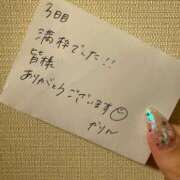 3日目
満枠でした!!
皆様
ありがとうございます☺
かりん